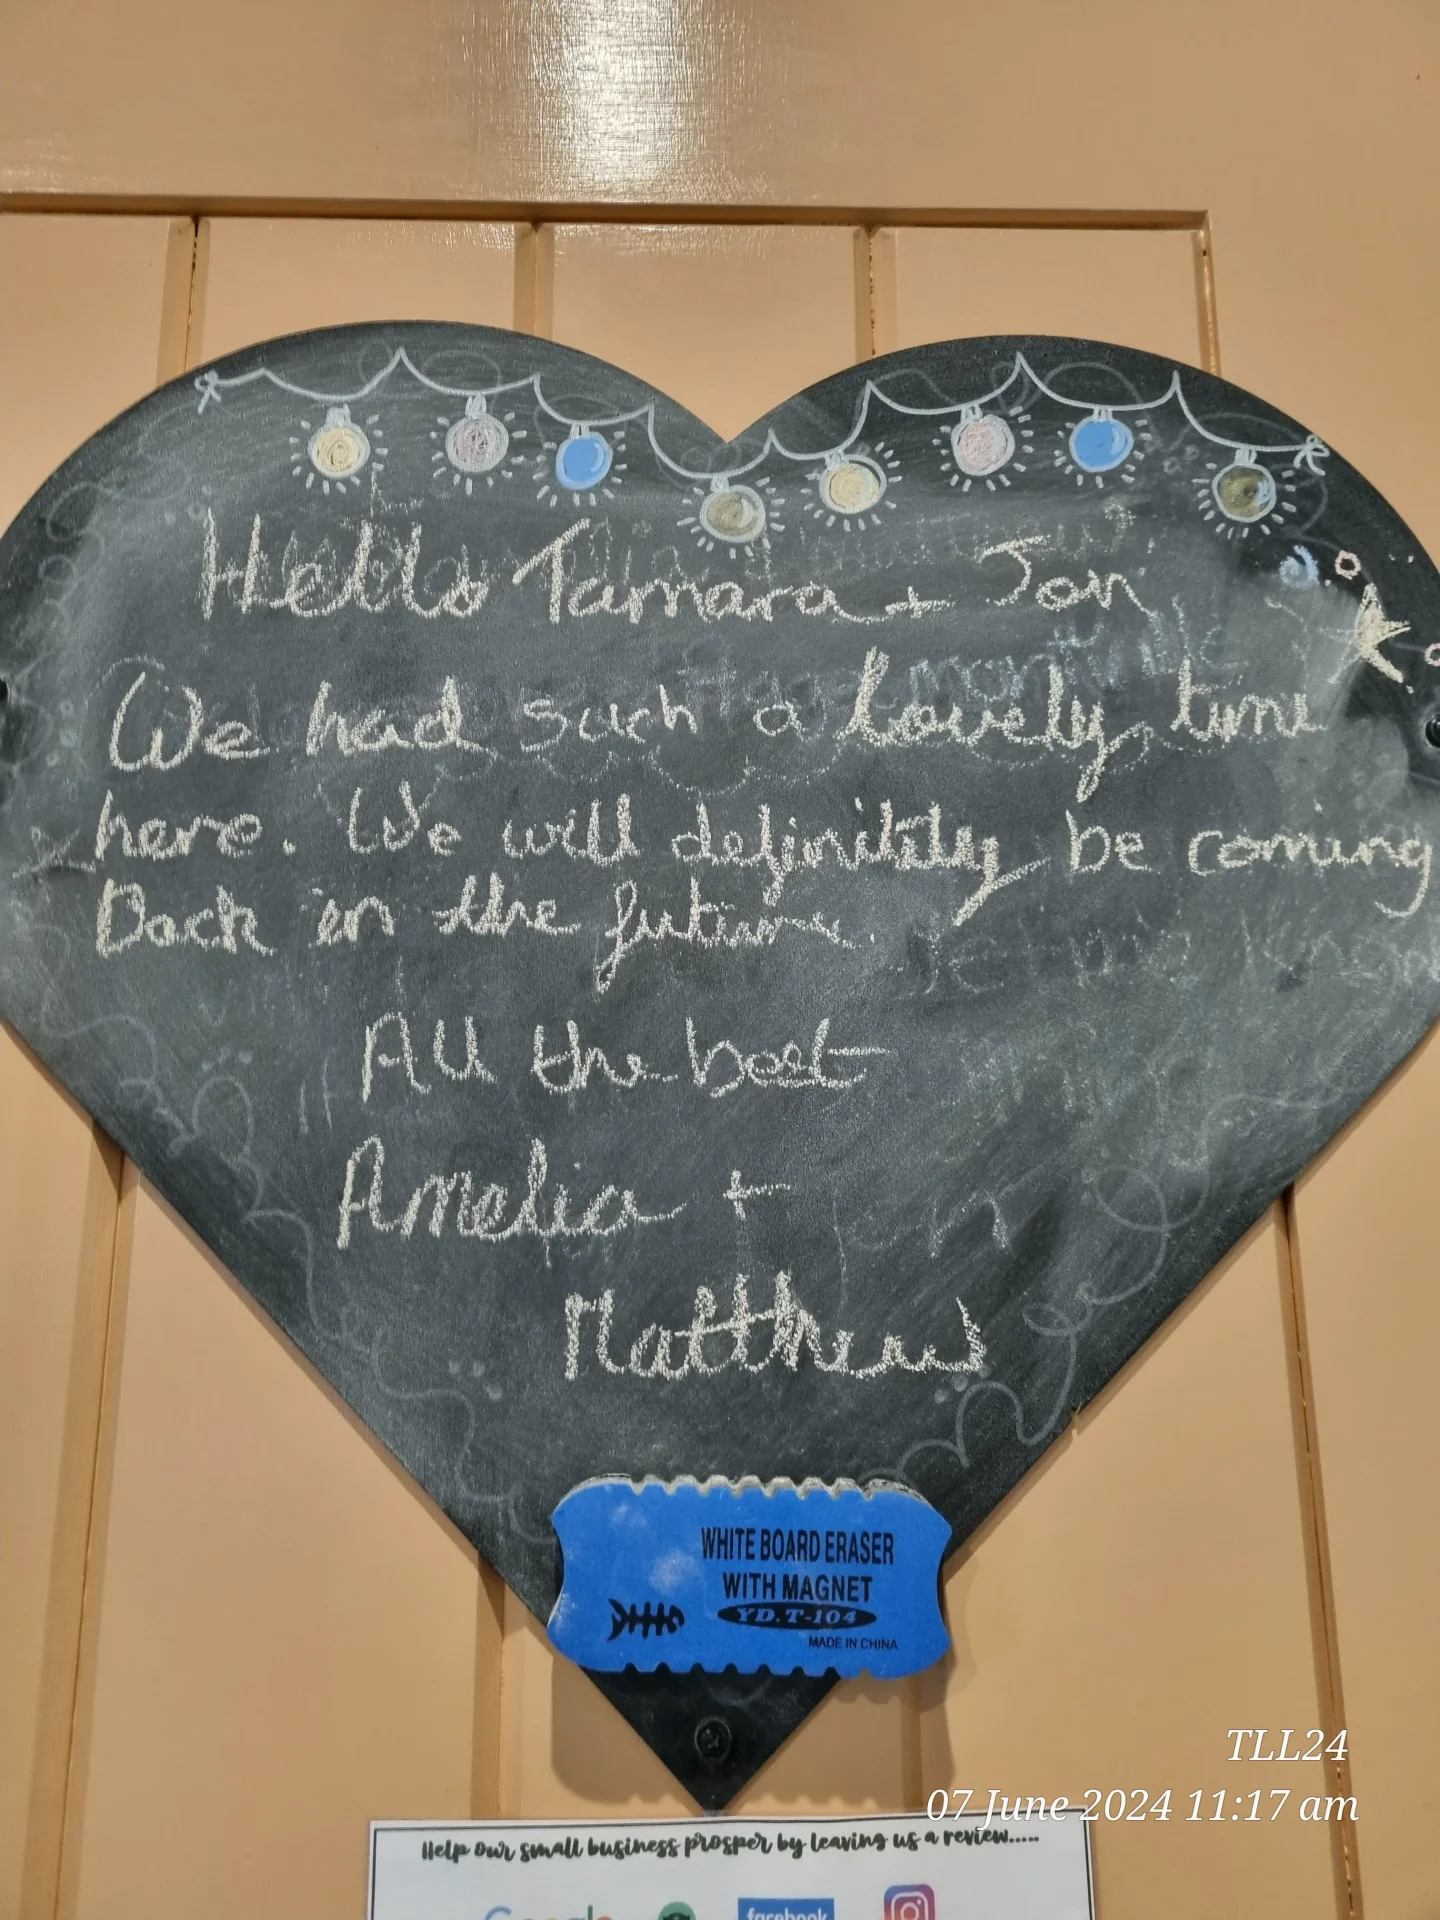 Hello Tamara + Jon
We had such a lovely time
here. We will definitely be coming
Back in the future.
All the best
Amelia +
Matthew
WHITE BOARD ERASER
WITH MAGNET
YD.T-104
MADE IN CHINA
TLL24
07 June 2024 11:17 am
Help our small business prosper by leaving us a review.....
Google facebook